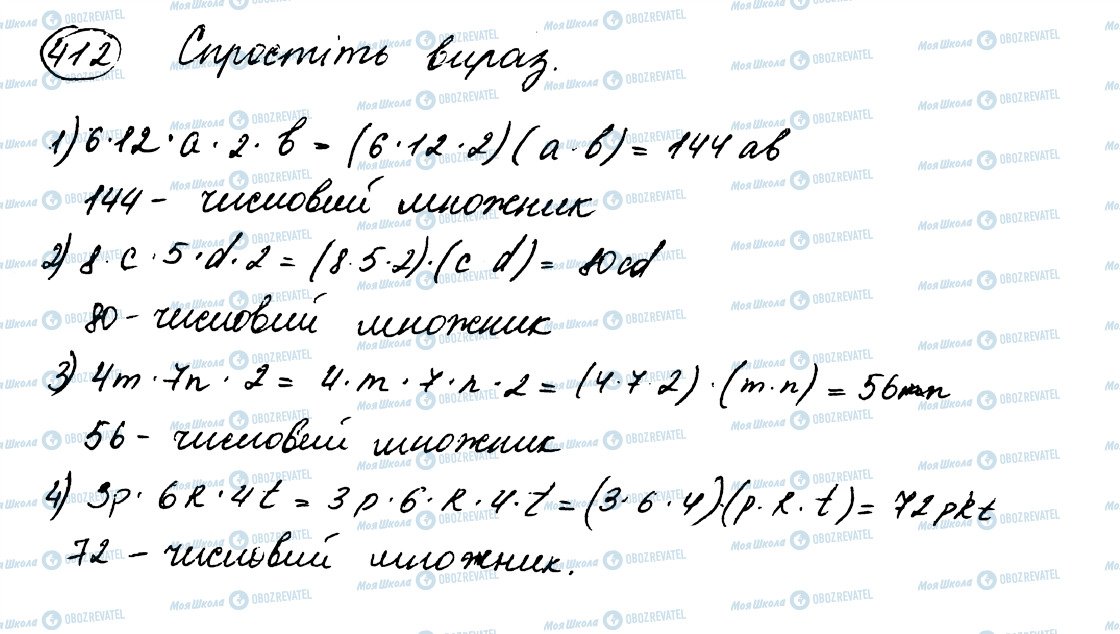 412 Спростіть вираз.
1) 6·12·a·2·b = (6·12·2)(a·b) = 144ab
144 - числовий множник
2) 8·c·5·d·2 = (8·5·2)·(c d) = 80cd
80 - числовий множник
3) 4m·7n·2 = 4·m·7·n·2 = (4·7·2)·(m·n) = 56mn
56 - числовий множник
4) 3p·6k·4t = 3p·6·k·4·t = (3·6·4)(p·k·t) = 72pkt
72 - числовий множник.